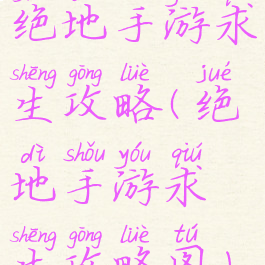 绝地手游求
shēng gōng lüè jué
生攻略(绝
dì shǒu yóu qiú
地手游求
shēng gōng lüè tú
生攻略图)